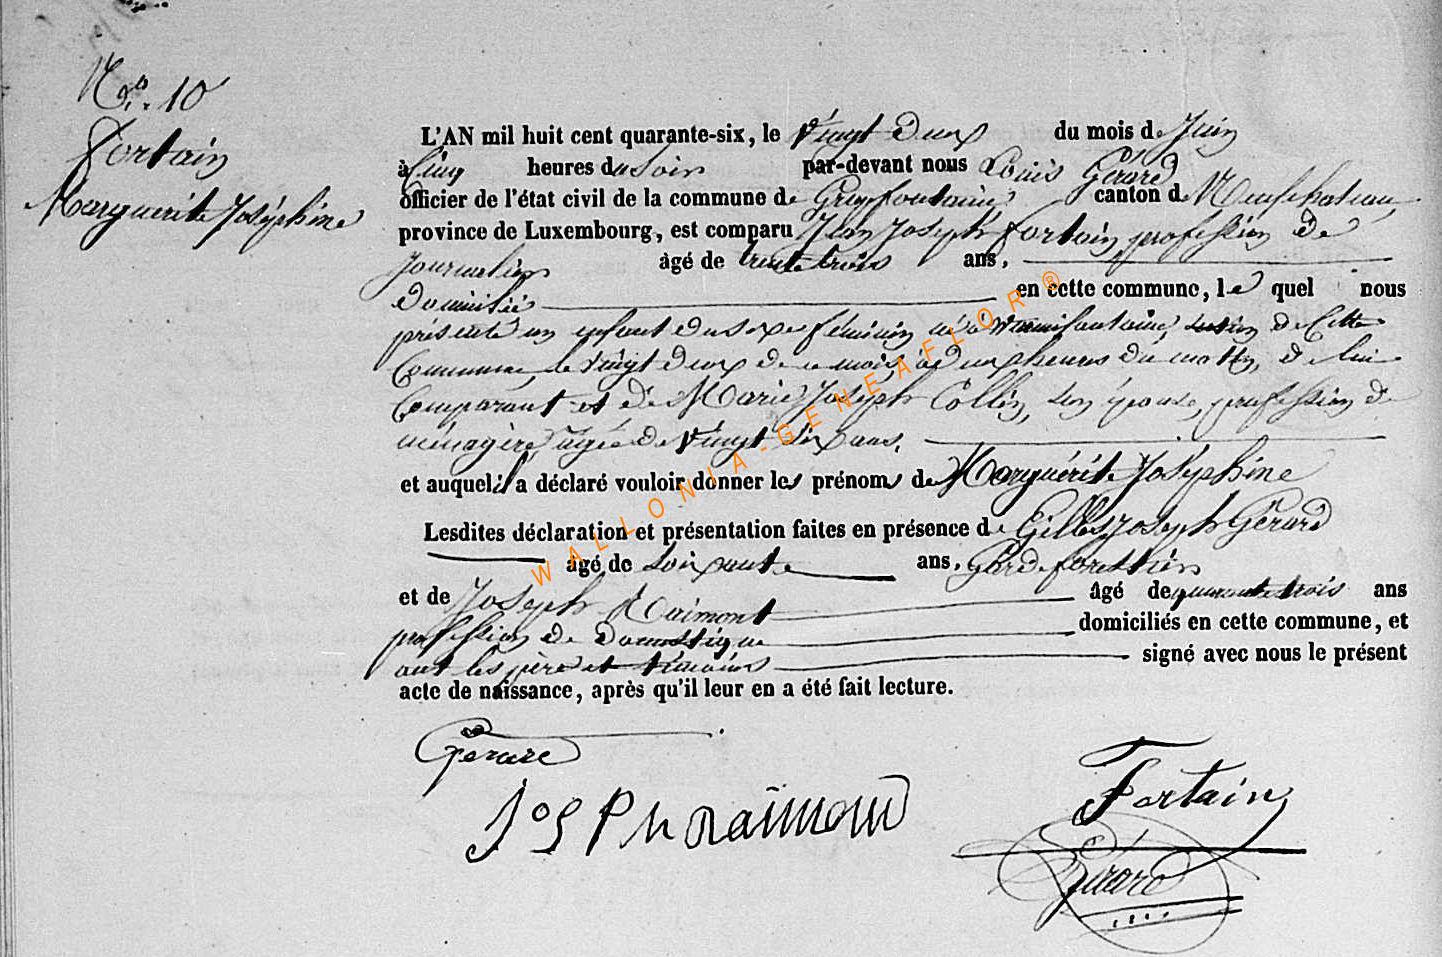 N.o 10
Fortain
Marguerite Joséphine
L'AN mil huit cent quarante-six, le vingt deux du mois de Juin
à Cinq heures du Soir par-devant nous Louis Gérard
officier de l'état civil de la commune de Grapfontaine canton de Neufchateau
province de Luxembourg, est comparu Jean Joseph Fortain, profession de
Journalier âgé de trente trois ans,
domicilié en cette commune, le quel nous
présenté un enfant du sexe féminin né à Warmifontaine, section de Cette
Commune, le vingt deux de ce mois, à deux heures du matin, de lui
Comparant et de Marie Joseph Collin, son épouse, profession de
ménagère, agée de vingt six ans,
et auquel il a déclaré vouloir donner les prénoms de Marguérite Joséphine
Lesdites déclaration et présentation faites en présence de Gilles Joseph Gérard
âgé de soixante ans, Garde forestier
et de Joseph Raimont âgé de quarante trois ans
profession de domestique domiciliés en cette commune, et
ont les père et témoins signé avec nous le présent
acte de naissance, après qu'il leur en a été fait lecture.
Gérard
Joseph Raimond
Fortain
Gérard
WALLONIA-GENEAFLOR®